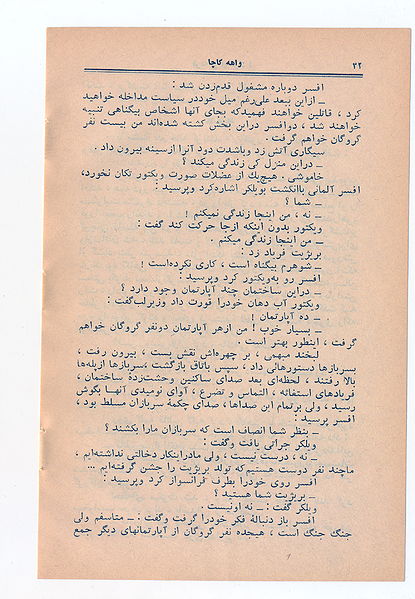 ۳۲
واهه کاچا
افسر دوباره مشغول قدم‌زدن شد :
ــ ازاین ببعد علی‌رغم میل خوددر سیاست مداخله خواهید
کرد ، قاتلین خواهند فهمیدکه بجای آنها اشخاص بیگناهی تنبیه
خواهند شد ، دوافسر دراین بخش کشته شده‌اند من بیست نفر
گروگان خواهم گرفت .
سیگاری آتش زد وباشدت دود آنرا ازسینه بیرون داد .
ــ دراین منزل کی زندگی میکند ؟
خاموشی . هیچ‌یك از عضلات صورت ویکتور تکان نخورد،
افسر آلمانی باانگشت بویلکر اشاره‌کرد وپرسید :
ــ شما ؟
ــ نه ، من اینجا زندگی نمیکنم !
ویکتور بدون اینکه ازجا حرکت کند گفت :
ــ من اینجا زندگی میکنم .
بریژیت فریاد زد :
ــ شوهرم بیگناه است ، کاری نکرده‌است !
افسر رو به‌ویکتور کرد وپرسید :
ــ دراین ساختمان چند آپارتمان وجود دارد ؟
ویکتور آب دهان خودرا قورت داد وزیرلب‌گفت :
ــ ده آپارتمان !
ــ بسیار خوب ! من ازهر آپارتمان دونفر گروگان خواهم
گرفت ، اینطور بهتر است .
لبخند مبهمی ، بر چهره‌اش نقش بست ، بیرون رفت ،
بسربازها دستورهائی داد ، سپس باتاق بازگشت ،سربازها ازپله‌ها
بالا رفتند ، لحظه‌ای بعد صدای ساکنین وحشت‌زده ساختمان ،
فریادهای استغاثه ، التماس و تضرع ، آوای نومیدی آنهـا بگوش
رسید ، ولی برتمام این صداها ، صدای چکمهٔ سربازان مسلط بود ،
افسر پرسید :
ــ بنظر شما انصاف است که سربازان مارا بکشند ؟
ویلکر جرأتی یافت وگفت :
ــ نه ، درست نیست ، ولی مادراینکار دخالتی نداشته‌ایم ،
ماچند نفر دوست هستیم‌که تولد بریژیت را جشن گرفته‌ایم ...
افسر روی خودرا بطرف فرانسواز کرد وپرسید :
ــ بریژیت شما هستید ؟
ویلکر گفت : ــ نه اونیست .
افسر باز دنبالهٔ فکر خودرا گرفت وگفت : ــ متاسفم ولی
جنگ جنگ است ، هیجده نفر گروگان از آپارتمانهای دیگر جمع